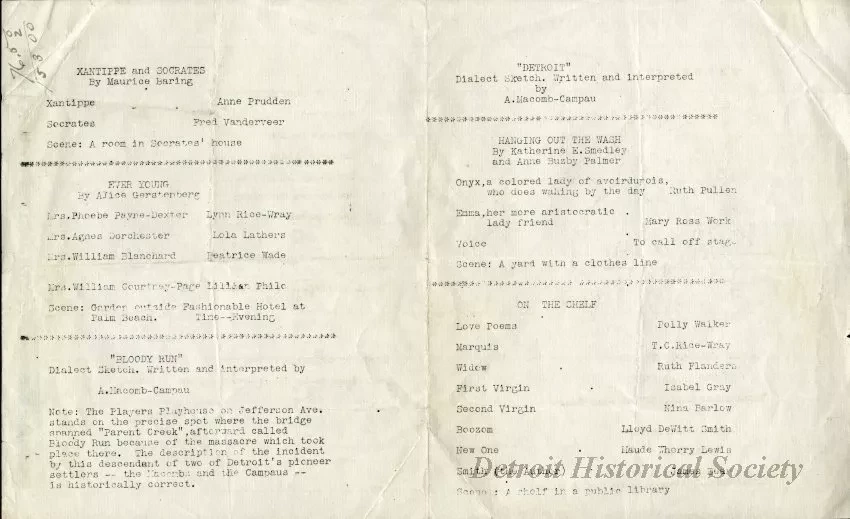 XANTIPPE and SOCRATES
By Maurice Baring
Xantippe Anne Prudden
Socrates Fred Vanderveer
Scene: A room in Socrates' house
EVER YOUNG
By Alice Gerstenberg
Mrs.Phoebe Payne-Dexter Lynn Rice-Wray
Mrs.Agnes Dorchester Lola Lathers
Mrs.William Blanchard Beatrice Wade
Mrs.William Courtney-Page Lillian Philo
Scene: Garden outside Fashionable Hotel at
Palm Beach. Time--Evening
"BLOODY RUN"
Dialect Sketch. Written and interpreted by
A.Macomb-Campau
Note: The Players Playhouse on Jefferson Ave.
stands on the precise spot where the bridge
spanned "Parent Creek",afterward called
Bloody Run because of the massacre which took
place there. The description of the incident
by this descendant of two of Detroit's pioneer
settlers -- the Macombs and the Campaus --
is historically correct.
"DETROIT"
Dialect Sketch. Written and interpreted
by
A.Macomb-Campau
HANGING OUT THE WASH
By Katherine E.Smedley
and Anne Busby Palmer
Onyx,a colored lady of avoirdupois,
who does wahing by the day Ruth Pullen
Emma,her more aristocratic
lady friend Mary Ross Work
Voice To call off stage
Scene: A yard with a clothes line
ON THE SHELF
Love Poems Polly Walker
Marquis T.C.Rice-Wray
Widow Ruth Flanders
First Virgin Isabel Gray
Second Virgin Nina Barlow
Boozom Lloyd DeWitt Smith
New One Maude Wherry Lewis
Smith (the Author) James
Scene: A shelf in a public library
Detroit Historical Society